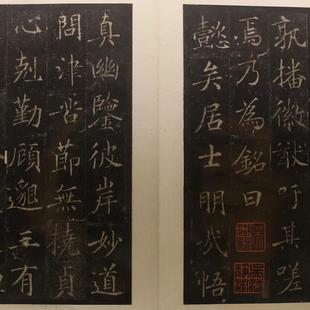 孰播徽猷吁其嗟
焉乃為銘曰
懿矣居士明哉悟
真幽鑒彼岸妙道
問津苦節無撓貞
心剋勤顧邈三有